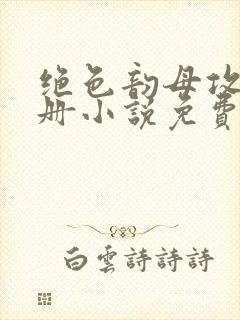 绝色韵母攻
册小说免費
白雲詩詩詩